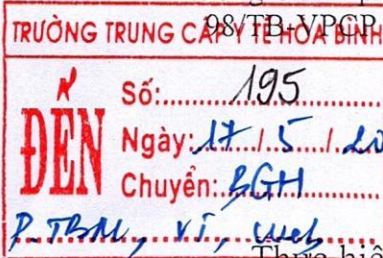 98/TB-VPCP
TRƯỜNG TRUNG CẤP Y TẾ HÒA BÌNH
ĐẾN
Số:.........195.........
Ngày: 17 / 5 / 20
Chuyển: BGH
P. TBM, VT,
Thực hiệ